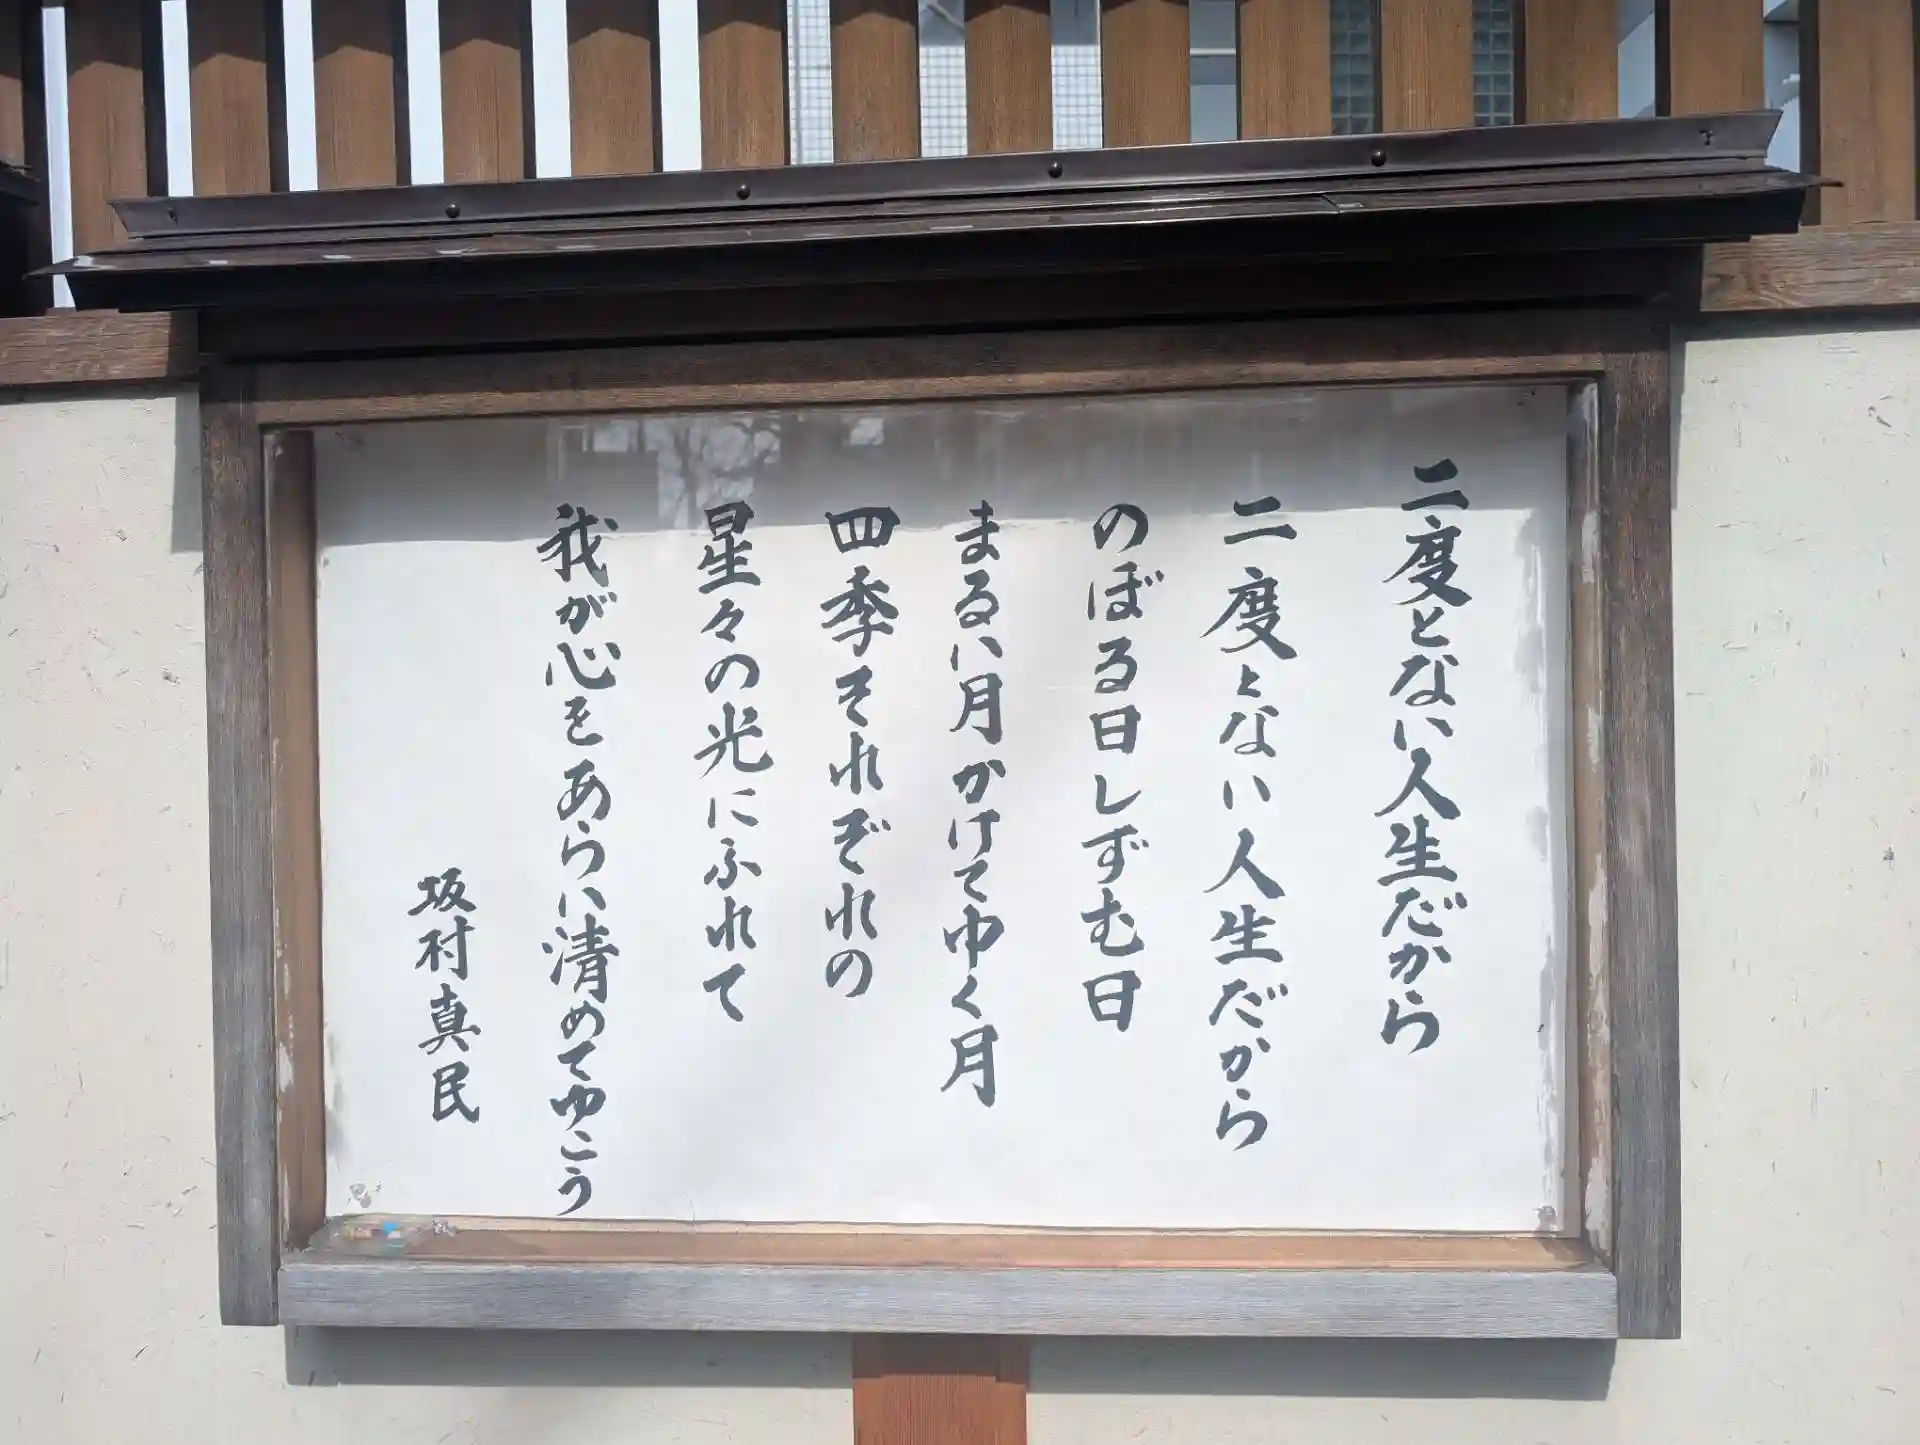 二度とない人生だから
二度とない人生だから
のぼる日しずむ日
まるい月かけてゆく月
四季それぞれの
星々の光にふれて
我が心をあらい清めてゆこう
坂村真民